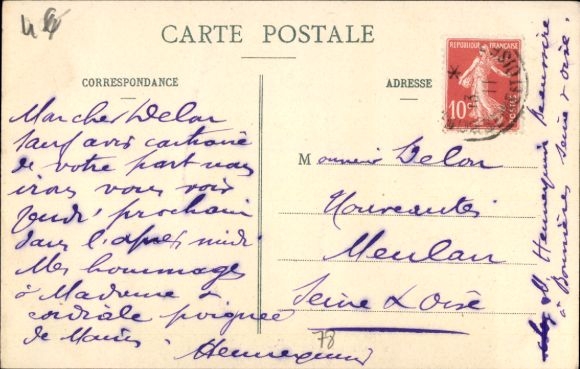 48
CARTE POSTALE
CORRESPONDANCE
ADRESSE
REPUBLIQUE FRANÇAISE
10
POSTES
Mon cher Delon
sauf avis contraire
de votre part nous
irons vous voir
jeudi prochain
dans l'après midi
Mes hommages
à Madame &
cordiale poignée
de Mains
Hennequin
Monsieur Delon
Nouveautés
Meulan
Seine & Oise
78
Hennequin
à Bonnières Seine & Oise.